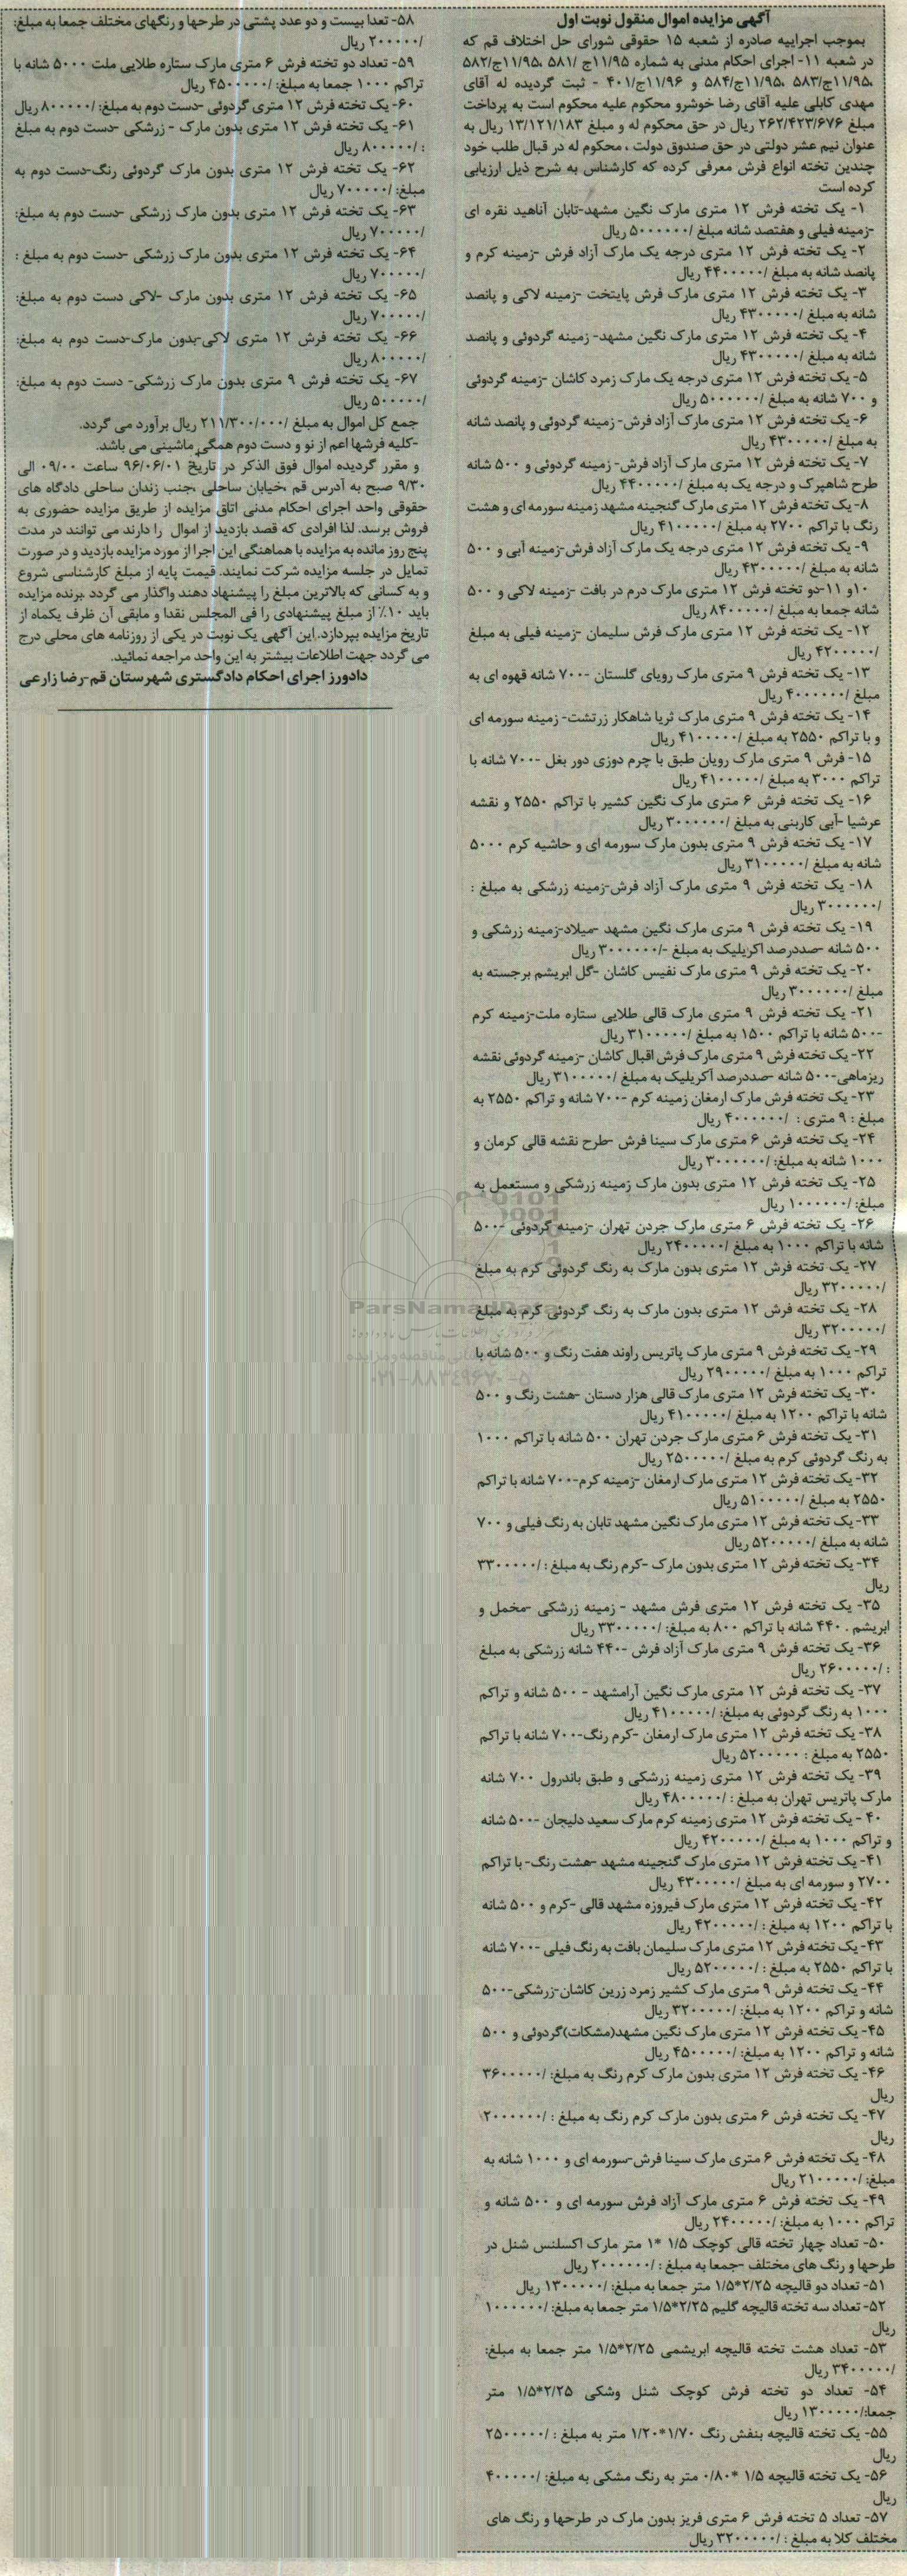 آگهی مزایده اموال منقول نوبت اول
بموجب اجراییه صادره از شعبه ۱۵ حقوقی شورای حل اختلاف قم که
در شعبه ۱۱- اجرای احکام مدنی به شماره ۱۱/۹۵ج /۵۸۱ ،۱۱/۹۵ج/۵۸۲
،۱۱/۹۵ج/۵۸۳ ،۱۱/۹۵ج/۵۸۴ و ۱۱/۹۶ج/۴۰۱ - ثبت گردیده له آقای
مهدی کابلی علیه آقای رضا خوشرو محکوم علیه محکوم است به پرداخت
مبلغ ۲۶۲/۴۲۳/۶۷۶ ریال در حق محکوم له و مبلغ ۱۳/۱۲۱/۱۸۳ ریال به
عنوان نیم عشر دولتی در حق صندوق دولت ، محکوم له در قبال طلب خود
چندین تخته انواع فرش معرفی کرده که کارشناس به شرح ذیل ارزیابی
کرده است
۱- یک تخته فرش ۱۲ متری مارک نگین مشهد-تابان آناهید نقره ای
-زمینه فیلی و هفتصد شانه مبلغ /۵۰۰۰۰۰۰ ریال
۲- یک تخته فرش ۱۲ متری درجه یک مارک آزاد فرش -زمینه کرم و
پانصد شانه به مبلغ /۴۴۰۰۰۰۰ ریال
۳- یک تخته فرش ۱۲ متری مارک فرش پایتخت -زمینه لاکی و پانصد
شانه به مبلغ /۴۳۰۰۰۰۰ ریال
۴- یک تخته فرش ۱۲ متری مارک نگین مشهد- زمینه گردوئی و پانصد
شانه به مبلغ /۴۳۰۰۰۰۰ ریال
۵- یک تخته فرش ۱۲ متری درجه یک مارک زمرد کاشان -زمینه گردوئی
و ۷۰۰ شانه به مبلغ /۵۰۰۰۰۰۰ ریال
۶- یک تخته فرش ۱۲ متری مارک آزاد فرش- زمینه گردوئی و پانصد شانه
به مبلغ /۴۳۰۰۰۰۰ ریال
۷- یک تخته فرش ۱۲ متری مارک آزاد فرش- زمینه گردوئی و ۵۰۰ شانه
طرح شاهپرک و درجه یک به مبلغ /۴۴۰۰۰۰۰ ریال
۸- یک تخته فرش ۱۲ متری مارک گنجینه مشهد زمینه سورمه ای و هشت
رنگ با تراکم ۲۷۰۰ به مبلغ /۴۱۰۰۰۰۰ ریال
۹- یک تخته فرش ۱۲ متری درجه یک مارک آزاد فرش-زمینه آبی و ۵۰۰
شانه به مبلغ /۴۳۰۰۰۰۰ ریال
۱۰و ۱۱-دو تخته فرش ۱۲ متری مارک درم در بافت -زمینه لاکی و ۵۰۰
شانه جمعا به مبلغ /۸۴۰۰۰۰۰ ریال
۱۲- یک تخته فرش ۱۲ متری مارک فرش سلیمان -زمینه فیلی به مبلغ
/۴۲۰۰۰۰۰ ریال
۱۳- یک تخته فرش ۹ متری مارک رویای گلستان -۷۰۰ شانه قهوه ای به
مبلغ /۴۰۰۰۰۰۰ ریال
۱۴- یک تخته فرش ۹ متری مارک ثریا شاهکار زرتشت- زمینه سورمه ای
و با تراکم ۲۵۵۰ به مبلغ /۴۱۰۰۰۰۰ ریال
۱۵- فرش ۹ متری مارک رویان طبق با چرم دوزی دور بغل -۷۰۰ شانه با
تراکم ۳۰۰۰ به مبلغ /۴۱۰۰۰۰۰ ریال
۱۶- یک تخته فرش ۶ متری مارک نگین کشیر با تراکم ۲۵۵۰ و نقشه
عرشیا -آبی کاربنی به مبلغ /۳۰۰۰۰۰۰ ریال
۱۷- یک تخته فرش ۹ متری بدون مارک سورمه ای و حاشیه کرم ۵۰۰۰
شانه به مبلغ /۳۱۰۰۰۰۰ ریال
۱۸- یک تخته فرش ۹ متری مارک آزاد فرش-زمینه زرشکی به مبلغ :
/۳۰۰۰۰۰۰ ریال
۱۹- یک تخته فرش ۹ متری مارک نگین مشهد -میلاد-زمینه زرشکی و
۵۰۰ شانه -صددرصد اکریلیک به مبلغ -/۳۰۰۰۰۰۰ ریال
۲۰- یک تخته فرش ۹ متری مارک نفیس کاشان -گل ابریشم برجسته به
مبلغ /۳۰۰۰۰۰۰ ریال
۲۱- یک تخته فرش ۹ متری مارک قالی طلایی ستاره ملت-زمینه کرم
-۵۰۰ شانه با تراکم ۱۵۰۰ به مبلغ /۳۱۰۰۰۰۰ ریال
۲۲- یک تخته فرش ۹ متری مارک فرش اقبال کاشان -زمینه گردوئی نقشه
ریزماهی-۵۰۰ شانه -صددرصد آکریلیک به مبلغ /۳۱۰۰۰۰۰ ریال
۲۳- یک تخته فرش مارک ارمغان زمینه کرم -۷۰۰ شانه و تراکم ۲۵۵۰ به
مبلغ : ۹ متری : /۴۰۰۰۰۰۰ ریال
۲۴- یک تخته فرش ۶ متری مارک سینا فرش -طرح نقشه قالی کرمان و
۱۰۰۰ شانه به مبلغ: /۳۰۰۰۰۰۰ ریال
۲۵- یک تخته فرش ۱۲ متری بدون مارک زمینه زرشکی و مستعمل به
مبلغ: /۱۰۰۰۰۰۰ ریال
۲۶- یک تخته فرش ۶ متری مارک جردن تهران -زمینه گردوئی -۵۰۰
شانه با تراکم ۱۰۰۰ به مبلغ /۲۴۰۰۰۰۰ ریال
۲۷- یک تخته فرش ۱۲ متری بدون مارک به رنگ گردوئی کرم به مبلغ
/۳۲۰۰۰۰۰ ریال
۲۸- یک تخته فرش ۱۲ متری بدون مارک به رنگ گردوئی کرم به مبلغ
/۳۲۰۰۰۰۰ ریال
۲۹- یک تخته فرش ۹ متری مارک پاتریس راوند هفت رنگ و ۵۰۰ شانه با
تراکم ۱۰۰۰ به مبلغ /۲۹۰۰۰۰۰ ریال
۳۰- یک تخته فرش ۱۲ متری مارک قالی هزار دستان -هشت رنگ و ۵۰۰
شانه با تراکم ۱۲۰۰ به مبلغ /۴۱۰۰۰۰۰ ریال
۳۱- یک تخته فرش ۶ متری مارک جردن تهران ۵۰۰ شانه با تراکم ۱۰۰۰
به رنگ گردوئی کرم به مبلغ /۲۵۰۰۰۰۰ ریال
۳۲- یک تخته فرش ۱۲ متری مارک ارمغان -زمینه کرم-۷۰۰ شانه با تراکم
۲۵۵۰ به مبلغ /۵۱۰۰۰۰۰ ریال
۳۳- یک تخته فرش ۱۲ متری مارک نگین مشهد تابان به رنگ فیلی و ۷۰۰
شانه به مبلغ /۵۲۰۰۰۰۰ ریال
۳۴- یک تخته فرش ۱۲ متری بدون مارک -کرم رنگ به مبلغ : /۳۳۰۰۰۰۰
ریال
۳۵- یک تخته فرش ۱۲ متری فرش مشهد - زمینه زرشکی -مخمل و
ابریشم . ۴۴۰ شانه با تراکم ۸۰۰ به مبلغ: /۳۳۰۰۰۰۰ ریال
۳۶- یک تخته فرش ۹ متری مارک آزاد فرش -۴۴۰ شانه زرشکی به مبلغ
: /۲۶۰۰۰۰۰ ریال
۳۷- یک تخته فرش ۱۲ متری مارک نگین آرامشهد - ۵۰۰ شانه و تراکم
۱۰۰۰ به رنگ گردوئی به مبلغ: /۴۱۰۰۰۰۰ ریال
۳۸- یک تخته فرش ۱۲ متری مارک ارمغان -کرم رنگ-۷۰۰ شانه با تراکم
۲۵۵۰ به مبلغ : ۵۲۰۰۰۰۰ ریال
۳۹- یک تخته فرش ۱۲ متری زمینه زرشکی و طبق باندرول ۷۰۰ شانه
مارک پاتریس تهران به مبلغ : /۴۸۰۰۰۰۰ ریال
۴۰ - یک تخته فرش ۱۲ متری زمینه کرم مارک سعید دلیجان -۵۰۰ شانه
و تراکم ۱۰۰۰ به مبلغ /۴۲۰۰۰۰۰ ریال
۴۱- یک تخته فرش ۱۲ متری مارک گنجینه مشهد -هشت رنگ- با تراکم
۲۷۰۰ و سورمه ای به مبلغ /۴۳۰۰۰۰۰ ریال
۴۲- یک تخته فرش ۱۲ متری مارک فیروزه مشهد قالی -کرم و ۵۰۰ شانه
با تراکم ۱۲۰۰ به مبلغ : /۴۲۰۰۰۰۰ ریال
۴۳- یک تخته فرش ۱۲ متری مارک سلیمان بافت به رنگ فیلی -۷۰۰ شانه
با تراکم ۲۵۵۰ به مبلغ : /۵۲۰۰۰۰۰ ریال
۴۴- یک تخته فرش ۹ متری مارک کشیر زمرد زرین کاشان-زرشکی-۵۰۰
شانه و تراکم ۱۲۰۰ به مبلغ: /۳۲۰۰۰۰۰ ریال
۴۵- یک تخته فرش ۱۲ متری مارک نگین مشهد(مشکات)گردوئی و ۵۰۰
شانه و تراکم ۱۲۰۰ به مبلغ: /۴۵۰۰۰۰۰ ریال
۴۶- یک تخته فرش ۱۲ متری بدون مارک کرم رنگ به مبلغ: /۳۶۰۰۰۰۰
ریال
۴۷- یک تخته فرش ۶ متری بدون مارک کرم رنگ به مبلغ : /۲۰۰۰۰۰۰
ریال
۴۸- یک تخته فرش ۶ متری مارک سینا فرش-سورمه ای و ۱۰۰۰ شانه به
مبلغ: /۲۱۰۰۰۰۰ ریال
۴۹- یک تخته فرش ۶ متری مارک آزاد فرش سورمه ای و ۵۰۰ شانه و
تراکم ۱۰۰۰ به مبلغ: /۲۴۰۰۰۰۰ ریال
۵۰- تعداد چهار تخته قالی کوچک ۱/۵ *۱ متر مارک اکسلنس شنل در
طرحها و رنگ های مختلف -جمعا به مبلغ : /۲۰۰۰۰۰۰ ریال
۵۱- تعداد دو قالیچه ۲/۲۵*۱/۵ متر جمعا به مبلغ: /۱۳۰۰۰۰۰ ریال
۵۲- تعداد سه تخته قالیچه گلیم ۲/۲۵*۱/۵ متر جمعا به مبلغ: /۱۰۰۰۰۰۰
ریال
۵۳- تعداد هشت تخته قالیچه ابریشمی ۲/۲۵*۱/۵ متر جمعا به مبلغ:
/۳۴۰۰۰۰۰ ریال
۵۴- تعداد دو تخته فرش کوچک شنل وشکی ۲/۲۵*۱/۵ متر
جمعا:/۱۳۰۰۰۰۰ ریال
۵۵- یک تخته قالیچه بنفش رنگ ۱/۷۰*۱/۲۰ متر به مبلغ : /۲۵۰۰۰۰۰
ریال
۵۶- یک تخته قالیچه ۱/۵ *۰/۸۰ متر به رنگ مشکی به مبلغ: /۴۰۰۰۰۰
ریال
۵۷- تعداد ۵ تخته فرش ۶ متری فریز بدون مارک در طرحها و رنگ های
مختلف کلا به مبلغ : /۳۲۰۰۰۰۰ ریال
۵۸- تعدا بیست و دو عدد پشتی در طرحها و رنگهای مختلف جمعا به مبلغ:
/۲۰۰۰۰۰ ریال
۵۹- تعداد دو تخته فرش ۶ متری مارک ستاره طلایی ملت ۵۰۰۰ شانه با
تراکم ۱۰۰۰ جمعا به مبلغ: /۴۵۰۰۰۰۰ ریال
۶۰- یک تخته فرش ۱۲ متری گردوئی -دست دوم به مبلغ: /۸۰۰۰۰۰ ریال
۶۱- یک تخته فرش ۱۲ متری بدون مارک - زرشکی -دست دوم به مبلغ
: /۸۰۰۰۰۰ ریال
۶۲- یک تخته فرش ۱۲ متری بدون مارک گردوئی رنگ-دست دوم به
مبلغ: /۷۰۰۰۰۰ ریال
۶۳- یک تخته فرش ۱۲ متری بدون مارک زرشکی -دست دوم به مبلغ:
/۷۰۰۰۰۰ ریال
۶۴- یک تخته فرش ۱۲ متری بدون مارک زرشکی -دست دوم به مبلغ :
/۷۰۰۰۰۰ ریال
۶۵- یک تخته فرش ۱۲ متری بدون مارک -لاکی دست دوم به مبلغ:
/۷۰۰۰۰۰ ریال
۶۶- یک تخته فرش ۱۲ متری لاکی-بدون مارک-دست دوم به مبلغ:
/۸۰۰۰۰۰ ریال
۶۷- یک تخته فرش ۹ متری بدون مارک زرشکی- دست دوم به مبلغ:
/۵۰۰۰۰۰ ریال
جمع کل اموال به مبلغ /۲۱۱/۳۰۰/۰۰۰ ریال برآورد می گردد.
-کلیه فرشها اعم از نو و دست دوم همگی ماشینی می باشد.
و مقرر گردیده اموال فوق الذکر در تاریخ ۹۶/۰۶/۰۱ ساعت ۰۹/۰۰ الی
۹/۳۰ صبح به آدرس قم ،خیابان ساحلی ،جنب زندان ساحلی دادگاه های
حقوقی واحد اجرای احکام مدنی اتاق مزایده از طریق مزایده حضوری به
فروش برسد. لذا افرادی که قصد بازدید از اموال را دارند می توانند در مدت
پنج روز مانده به مزایده با هماهنگی این اجرا از مورد مزایده بازدید و در صورت
تمایل در جلسه مزایده شرکت نمایند. قیمت پایه از مبلغ کارشناسی شروع
و به کسانی که بالاترین مبلغ را پیشنهاد دهند واگذار می گردد .برنده مزایده
باید ۱۰٪ از مبلغ پیشنهادی را فی المجلس نقدا و مابقی آن ظرف یکماه از
تاریخ مزایده بپردازد. این آگهی یک نوبت در یکی از روزنامه های محلی درج
می گردد جهت اطلاعات بیشتر به این واحد مراجعه نمائید.
دادورز اجرای احکام دادگستری شهرستان قم-رضا زارعی
ParsNamadData
۰۲۱-۸۸۳۴۹۶۷۰-۵